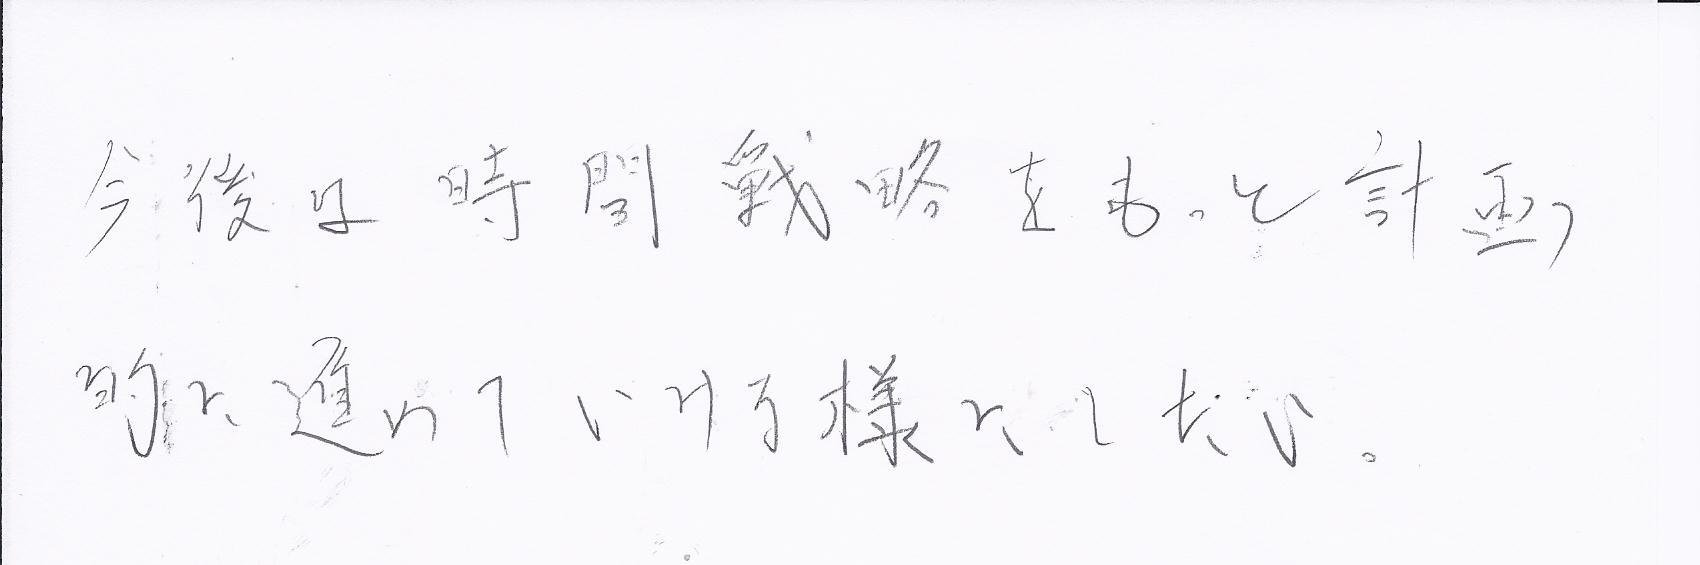 今後は時間戦略をもっと計画
的に進めていける様にしたい。